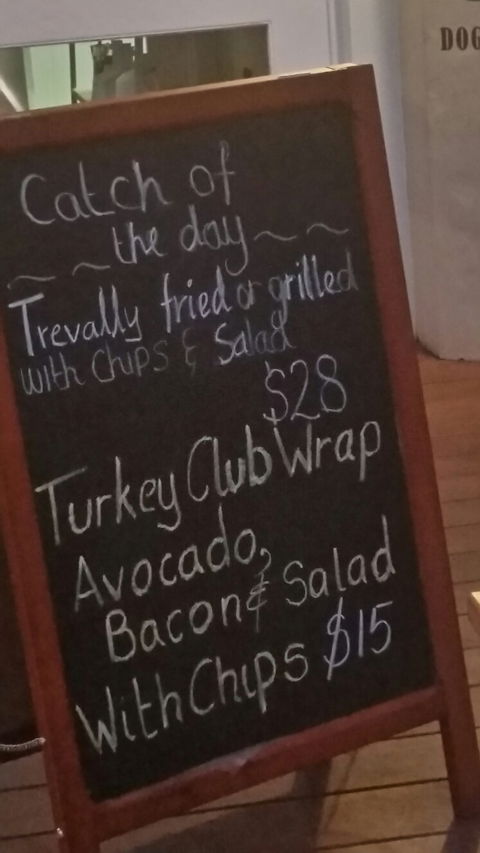 DOG
Catch of
~ ~ the day ~ ~
Trevally fried or grilled
with Chips & Salad
$28
Turkey Club Wrap
Avocado,
Bacon & Salad
With Chips $15